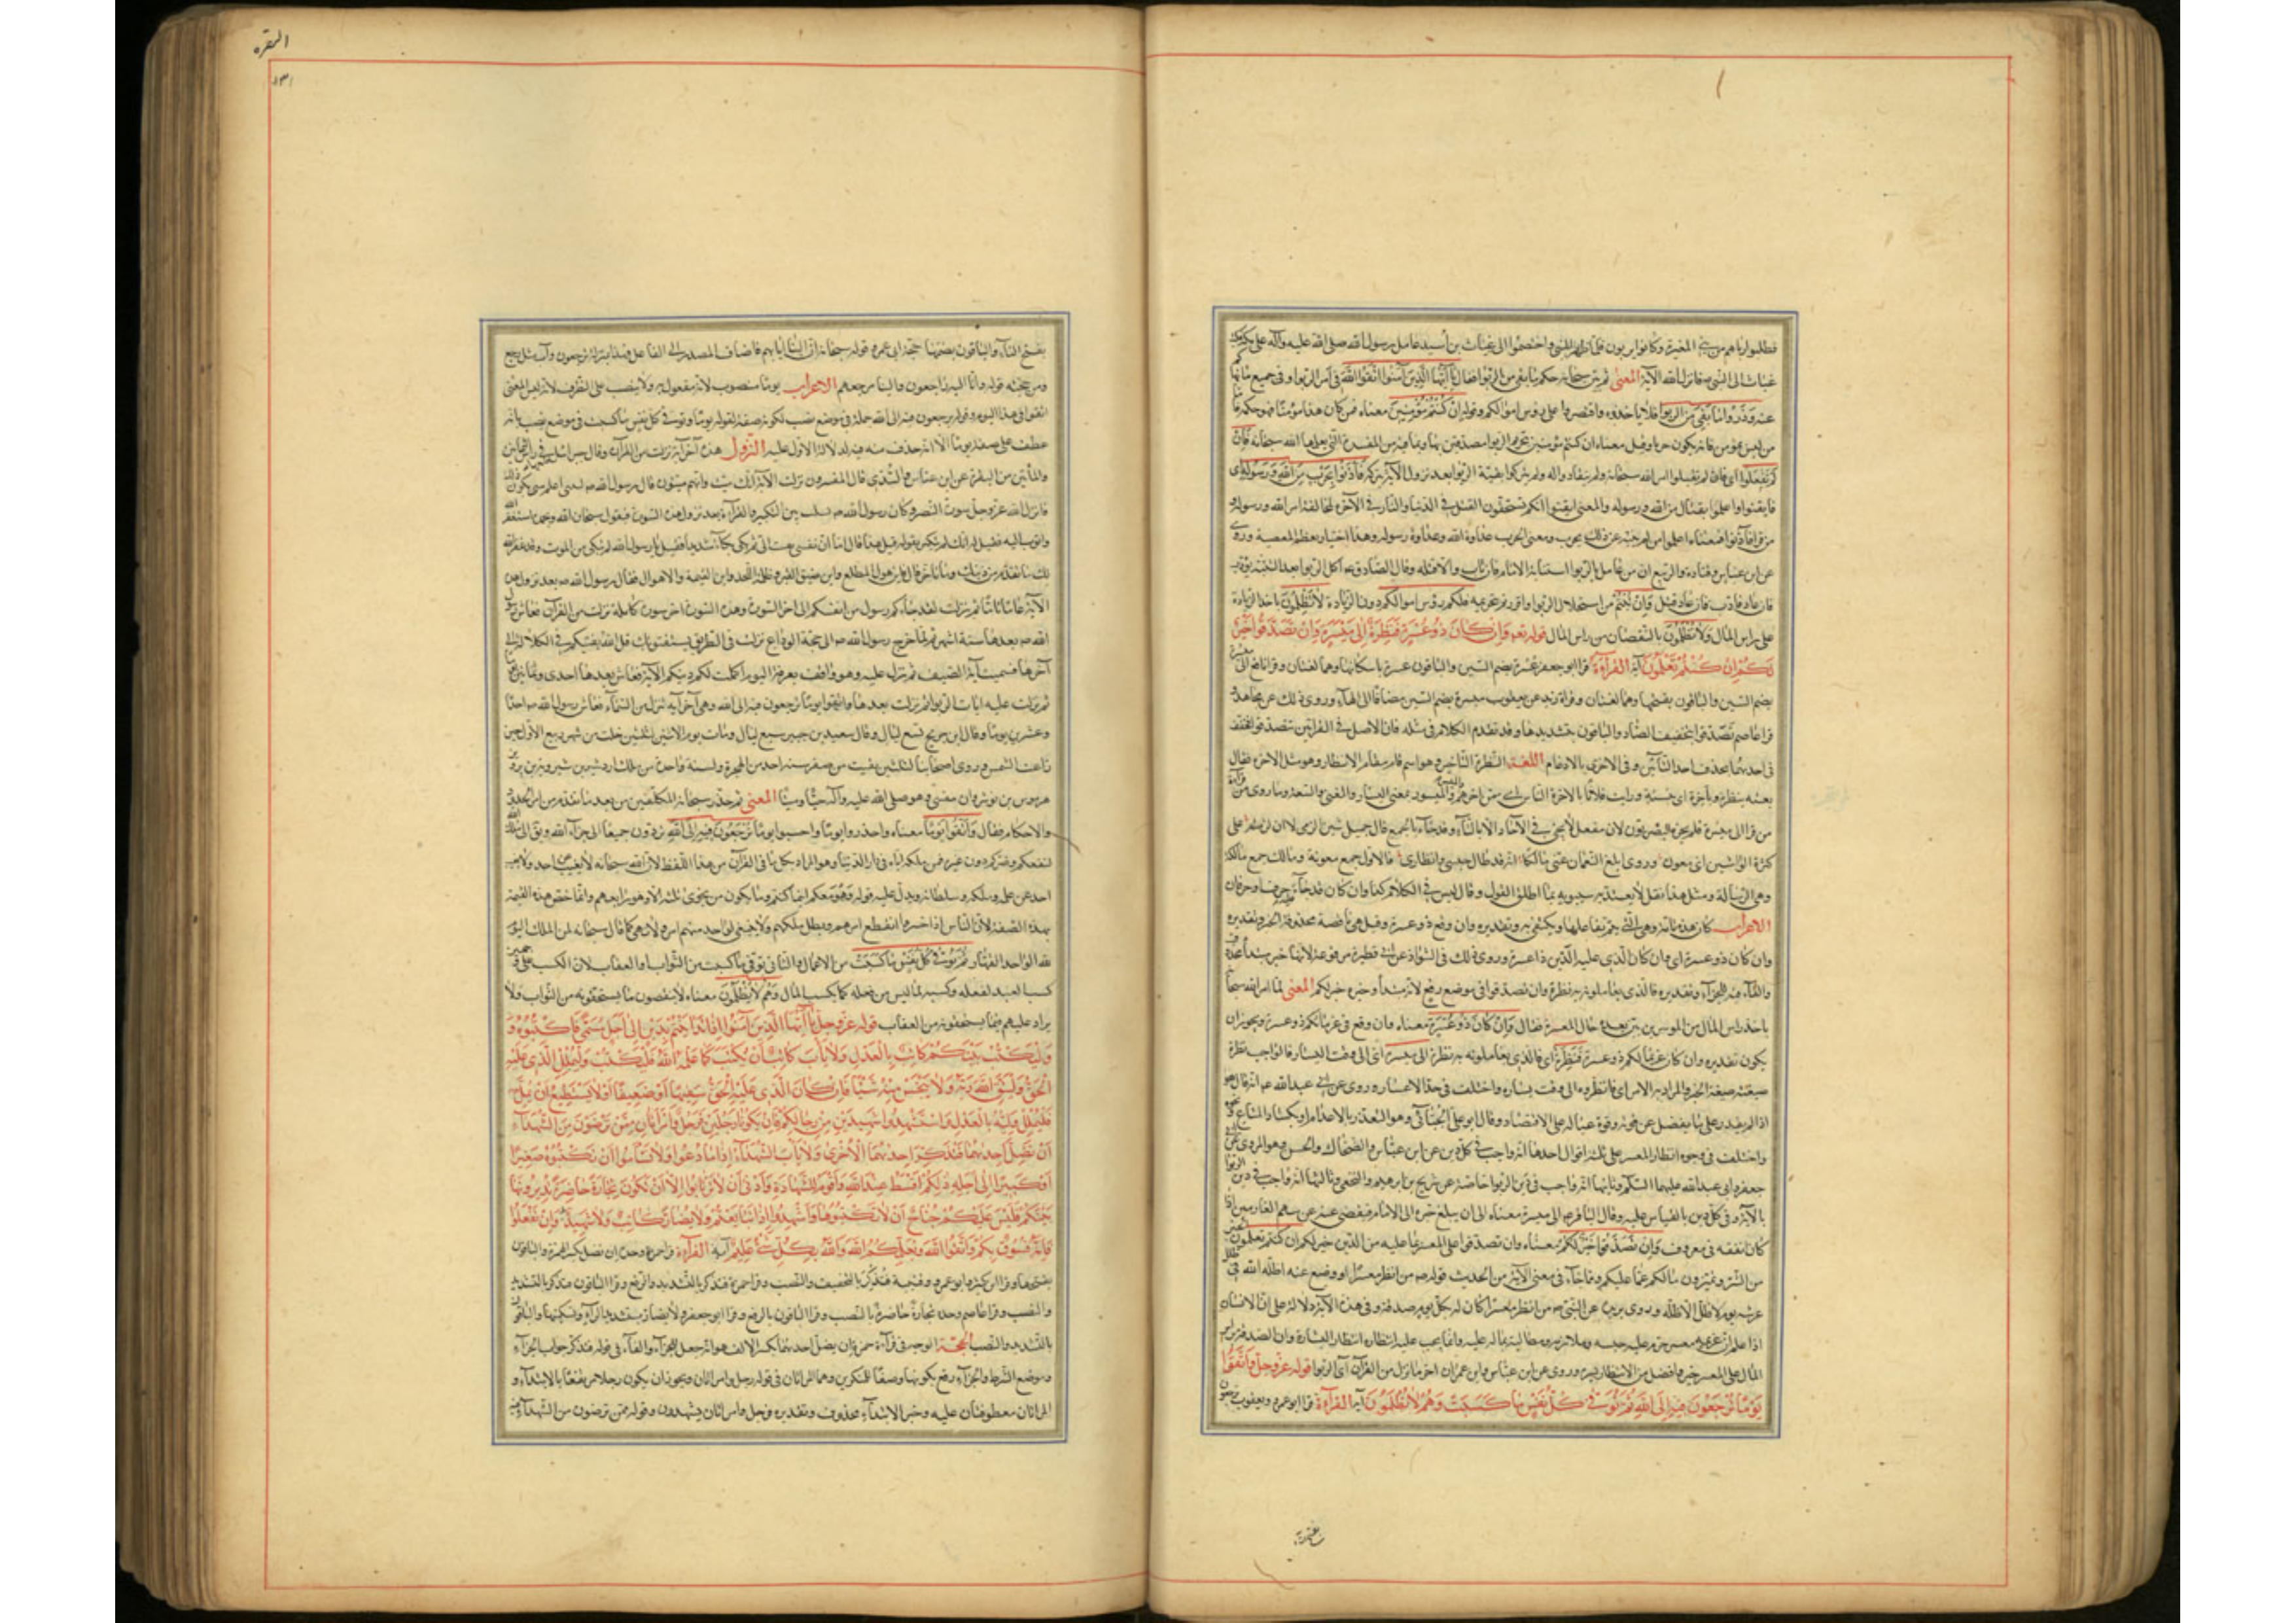 فطلبوا رباهم من بني المغيرة وكانوا يربون فلما ظهر النبي واختصموا الى عتاب بن أسيد عامل رسول الله صلى الله عليه وآله على مكة فكتب
عتاب الى النبي ص فانزل الله الآية المعنى ثم بين سبحانه حكم ما بقي من الربوا فقال يا أيها الذين آمنوا اتقوا الله في أمر الربوا وفي جميع ما نهاكم
عنه وذروا ما بقي من الربوا فلا تأخذوه واقتصروا على رؤس اموالكم وقوله ان كنتم مؤمنين معناه فمن كان هذا مؤمنا فهو حكمه فاما
من ليس بمؤمن فانه يكون حربا وقيل معناه ان كنتم مؤمنين بتحريم الربوا مصدقين بما فيه من المفسدة التي يعلمها الله سبحانه فان
لم تفعلوا اى فان لم تقبلوا امر الله سبحانه ولم تنقادوا له ولم تتركوا بقية الربوا بعد نزول الآية بتركه فأذنوا بحرب من الله ورسوله اى
فايقنوا واعلموا بقتال من الله ورسوله والمعنى ايقنوا انكم تستحقون القتل في الدنيا والنار في الآخرة لمخالفة امر الله ورسوله و
من قرا فآذنوا فمعناه اعلموا من لم ينته عن ذلك بحرب ومعنى الحرب عداوة الله وعداوة رسوله وهذا اخبار بعظم المعصية وروى
عن ابن عباس وقتادة والربيع ان من عامل بالربوا استتابه الامام فان تاب والا قتله وقال الصادق ع آكل الربوا بعد البينة يؤدب
فان عاد ادب فان عاد قتل وان تبتم من استحلال الربوا واقررتم بتحريمه فلكم رؤس اموالكم دون الزيادة لا تظلمون باخذ الزيادة
على راس المال ولا تظلمون بالنقصان من راس المال قوله تعه وإن كان ذو عسرة فنظرة إلى ميسرة وان تصدقوا خير
لكم إن كنتم تعلمون آية القراءة قرا ابو جعفر عسرة بضم السين والباقون عسرة باسكانها وهما لغتان وقرا نافع الى ميسرة
بضم السين والباقون بفتحها وهما لغتان وقراة زيد عن يعقوب ميسره بضم السين مضافا الى الهاء وروى ذلك عن مجاهد و
قرا عاصم تصدقوا بتخفيف الصاد والباقون بتشديدها وقد تقدم الكلام في مثله فان الاصل في القراتين تتصدقوا فخفف
في احديهما بحذف احد التائين وفي الاخرى بالادغام اللغة النظرة التاخير وهو اسم قام مقام الانظار وهو مثل الاخرة يقال
بعته بنظرة وباخرة اى بنسيئة ورايت فلانا بالاخرة الناس اى في اخرهم والميسرة والميسور بمعنى اليسار والغنى والسعة وما روى من قراءة
من قرا الى ميسره فلم يجزه البصريون لان مفعل لا يجئ في الآحاد الا بالتاء وقد جاء بالجمع قال جميل بثين الزمي لا ان لا ان لزمته على
كثرة الواشين اى معون وروى ابلغ النعمان عني مألكا انه قد طال حبسي وانتظاري فالاول جمع معونة ومالك جمع مألكة
وهي الرسالة ومثل هذا نقل لا يعتد به سيبويه بما اطلق القول وقال ليس في الكلام كذا وان كان قد جاء حرف او حرفان
الاعراب كان هذه تامة وهي التي تتم بفاعلها ويكتفى به وتقديره وان وقع ذو عسرة وقيل هي ناقصة محذوفة الخبر وتقديره
وان كان ذو عسرة اى وان كان الذي عليه الدين ذا عسرة وروى ذلك في الشواذ عن ابي فنظرة مرفوعة لانها خبر مبتدأ محذوف
والفاء فيه للجزاء وتقديره فالذي يعاملونه به نظرة وان تصدقوا في موضع رفع لانه مبتدأ وخير خبره لكم المعنى لما امر الله سبحانه
باخذ راس المال من الموسرين بين بعده حال المعسر فقال وان كان ذو عسرة معناه وان وقع في غرمائكم ذو عسرة ويجوز ان
يكون تقديره وان كان غريما لكم ذو عسرة فنظرة اى فالذي يعاملونه به نظرة الى ميسرة اى الى وقت اليسار فالواجب نظرة
صيغته صيغة الخبر والمراد به الامر اى فانظروه الى وقت يساره واختلف في حد الاعسار وروى عن ابي عبد الله ع انه قال هو
اذا لم يقدر على ما يفضل عن قوته وقوة عياله على الاقتصاد وقال ابو علي الجبائي وهو التعذر بالاعدام او بكساد المتاع ونحوه
واختلف في وجوب انظار المعسر على ثلثة اقوال احدها انه واجب في كل دين عن ابن عباس والضحاك والحسن وهو المروى عن ابي
جعفر وابي عبد الله عليهما السلم وثانيها انه واجب في دين الربوا خاصة عن شريح وابرهيم والنخعي وثالثها انه واجب في دين الربوا
بالآية وفي كل دين بالقياس عليه وقال الباقر ع الى ميسرة معناه الى ان يبلغ خبره الى الامام فيقضي عنه من سهم الغارمين اذا
كان نفقه في معروف وان تصدقوا خير لكم معناه وان تصدقوا على المعسر بما عليه من الدين خير لكم ان كنتم تعلمون الخير
من الشر وتميزون ما لكم عما عليكم ومما جاء في معنى الآية من الحديث قوله ص من انظر معسرا او وضع عنه اظله الله في ظل
عرشه يوم لا ظل الا ظله وروى بريدة عن النبي ص من انظر معسرا كان له بكل يوم صدقة وفي هذه الآية دلالة على ان الانسان
اذا علم ان غريمه معسر حرم عليه حبسه وملازمته ومطالبته بما له عليه وانما يجب عليه انتظاره انتظار اليسارة وان الصدقة براس
المال على المعسر خير وافضل من الانتظار ليسره وروى عن ابن عباس وابن عمر ان اخر ما نزل من القرآن آي الربوا قوله عز وجل واتقوا
يوما ترجعون فيه إلى الله ثم توفى كل نفس ما كسبت وهم لا يظلمون آية القراءة قرا ابو عمرو ويعقوب ترجعون
بفتح التاء
البقره
١٣١
بفتح التاء والباقون بضمها حجة ابي عمرو قوله سبحانه ان الينا ايابهم فاضاف المصدر الى الفاعل فهذا بمنزلة يرجعون وآب مثل رجع
ومن حجته قوله وانا اليه راجعون والينا مرجعهم الاعراب يوما منصوب لانه مفعول به ولا ينصب على الظرف لانه ليس المعنى
اتقوا في هذا اليوم وقوله ترجعون فيه الى الله جملة في موضع نصب لكونه صفة لقوله يوما وتوفى كل نفس ما كسبت في موضع نصب بانه
عطف على صفة يوما الا انه حذف منه فيه لدلالة الاول عليه النزول هذه آخر آية نزلت من القرآن وقال جبرائيل ضعها في راس الثمانين
والمأتين من البقرة عن ابن عباس والسدي قال المفسرون لما نزلت الآية انك ميت وانهم ميتون قال رسول الله ص ليتني اعلم متى يكون ذلك
فانزل الله عز وجل سورة النصر وكان رسول الله ص يسكت بين التكبير والقراءة بعد نزول هذه السورة فيقول سبحان الله وبحمده استغفر الله
واتوب اليه فقيل له انك لم تكن تقوله قبل هذا قال اما ان نفسي نعيت الي ثم بكى بكاء شديدا فقيل يا رسول الله او تبكي من الموت وقد غفر الله
لك ما تقدم من ذنبك وما تاخر قال فاين هول المطلع واين ضيق القبر وظلمة اللحد واين القيمة والاهوال فعاش رسول الله ص بعد نزول هذه
الآية عاما تاما ثم نزلت لقد جاءكم رسول من انفسكم الى اخر السورة وهذه السورة اخر سورة كاملة نزلت من القرآن فعاش رسول
الله ص بعدها ستة اشهر ثم لما خرج رسول الله ص الى حجة الوداع نزلت في الطريق يستفتونك قل الله يفتيكم في الكلالة الى
آخرها فسميت آية الصيف ثم نزل عليه وهو واقف بعرفة اليوم اكملت لكم دينكم الآية فعاش بعدها احدى وثمانين يوما
ثم نزلت عليه ايات الربوا ثم نزلت بعدها واتقوا يوما ترجعون فيه الى الله وهي آخر آية نزل من السماء فعاش رسول الله ص احدا
وعشرين يوما وقال ابن جريج تسع ليال وقال سعيد بن جبير سبع ليال ومات يوم الاثنين لليلتين خلت من شهر ربيع الاول حين
زاغت الشمس وروى اصحابنا لليلتين بقيت من صفر سنة احد من الهجرة ولسنة واحدة من ملك اردشير بن شيرويه بن پرويز
هرمز بن نوشروان مضى وهو صلى الله عليه وآله حيا وميتا المعنى ثم حذر سبحانه المكلفين من بعد ما تقدم من ذكر الحدود
والاحكام فقال واتقوا يوما معناه واحذروا يوما واخشوا يوما ترجعون فيه الى الله تردون جميعا الى جزاء الله وقيل الى ملك الله
لنفعكم وضركم دون غيره ممن ملكه اياه في دار الدنيا وهو المراد بكل ما في القرآن من هذا اللفظ لان الله سبحانه لا يغيب عنه احد ولا يغيب
احد عن علمه وملكه وسلطانه ويدل عليه قوله وهو معكم اينما كنتم وما يكون من نجوى ثلثة الا هو رابعهم وانما خص هذه القيمة
بهذه الصفة لان الناس اذا حشروا انقطع امرهم وبطل ملكهم ولا يبقى لواحد منهم امر ولا نهي كما قال سبحانه لمن الملك اليوم
لله الواحد القهار ثم توفى كل نفس ما كسبت من الاعمال والثاني توفى ما كسبت من الثواب والعقاب لان الكسب على وجهين
كسب العبد لفعله وكسبه لما ليس من فعله كما يكسب المال وهم لا يظلمون معناه لا ينقصون ما يستحقونه من الثواب ولا
يزاد عليهم ما يستحقونه من العقاب قوله عز وجل يا أيها الذين آمنوا إذا تداينتم بدين إلى أجل مسمى فاكتبوه و
وليكتب بينكم كاتب بالعدل ولا يأب كاتب أن يكتب كما علمه الله فليكتب وليملل الذي عليه
الحق وليتق الله ربه ولا يبخس منه شيئا فإن كان الذي عليه الحق سفيها أو ضعيفا أو لا يستطيع أن يمل
فليملل وليه بالعدل واستشهدوا شهيدين من رجالكم فإن لم يكونا رجلين فرجل وامرأتان ممن ترضون من الشهداء
أن تضل إحديهما فتذكر إحديهما الأخرى ولا يأب الشهداء إذا ما دعوا ولا تسأموا أن تكتبوه صغيرا
أو كبيرا إلى أجله ذلكم أقسط عند الله وأقوم للشهادة وأدنى أن لا ترتابوا إلا أن تكون تجارة حاضرة تديرونها
بينكم فليس عليكم جناح أن لا تكتبوها وأشهدوا إذا تبايعتم ولا يضار كاتب ولا شهيد وإن تفعلوا
فإنه فسوق بكم واتقوا الله ويعلمكم الله والله بكل شئ عليم آية القراءة قرا حمزة وحده ان تضل بكسر الهمزة والباقون
بفتحها وقرا ابن كثير وابو عمرو وقتيبة فتذكر بالتخفيف والنصب وقرا حمزة فتذكر بالتشديد والرفع وقرا الباقون فتذكر بالتشديد
والنصب وقرا عاصم وحده تجارة حاضرة بالنصب وقرا الباقون بالرفع وقرا ابو جعفر ولا يضار بتشديد الراء وتسكينها والباقون
بالتشديد والنصب الحجة الوجه في قراءة حمزة ان تضل احديهما بكسر الالف هو انه جعل للجزاء والفاء في قوله فتذكر جواب الجزاء
وموضع الشرط والجزاء رفع بكونهما وصفا للمنكرين وهما المراتان في قوله فرجل وامراتان ويجوز ان يكون رجل مرتفعا بالابتداء و
المراتان معطوفتان عليه وخبر الابتداء محذوف وتقديره فرجل وامراتان يشهدون وقوله ممن ترضون من الشهداء فيه